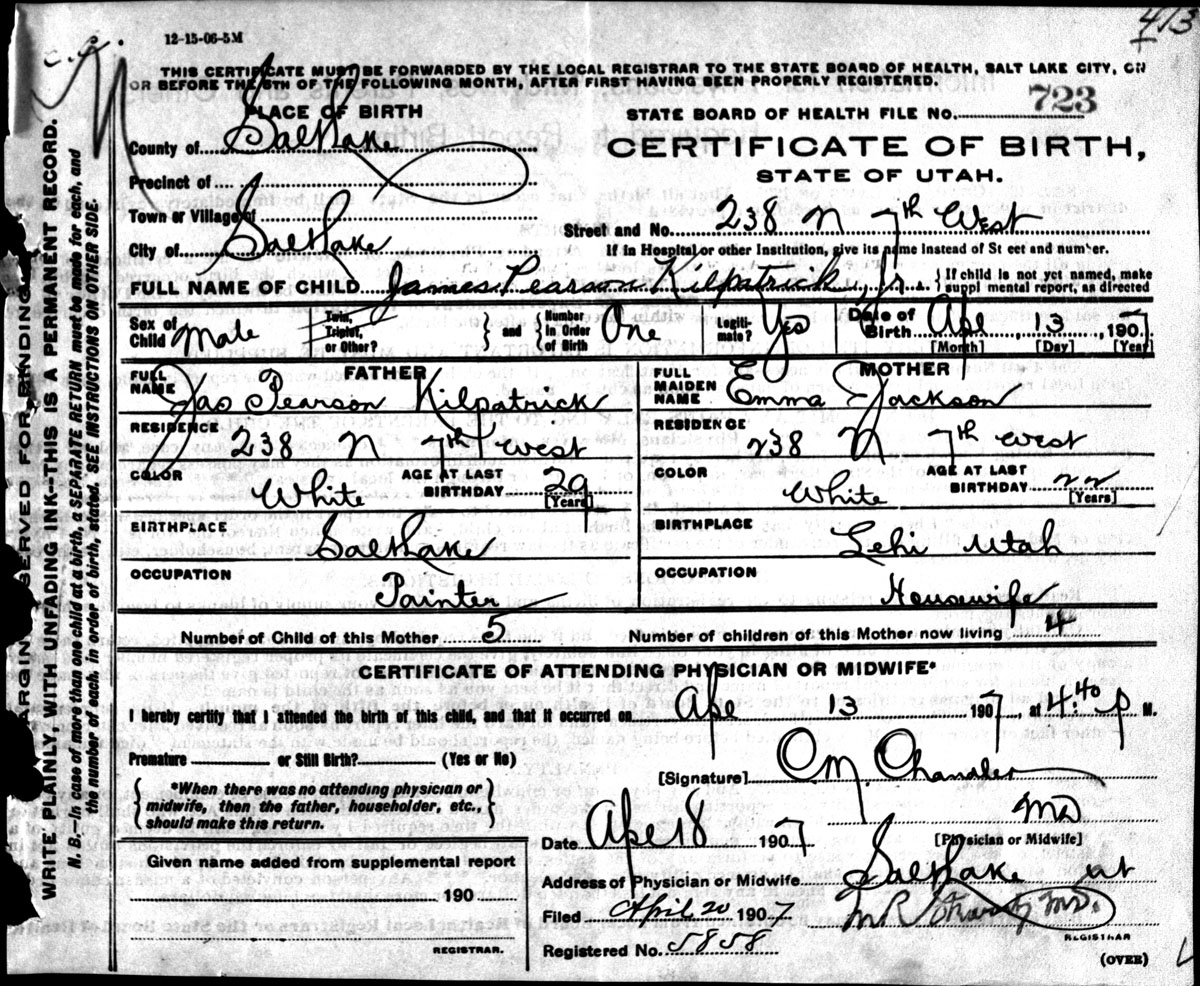 413
12-15-06-5M
THIS CERTIFICATE MUST BE FORWARDED BY THE LOCAL REGISTRAR TO THE STATE BOARD OF HEALTH, SALT LAKE CITY, ON
OR BEFORE THE 5TH OF THE FOLLOWING MONTH, AFTER FIRST HAVING BEEN PROPERLY REGISTERED.
PLACE OF BIRTH
STATE BOARD OF HEALTH FILE NO. 723
County of Salt Lake
CERTIFICATE OF BIRTH,
STATE OF UTAH.
Precinct of
Town or Village of
Street and No. 238 N 7th West
City of Salt Lake
If in Hospital or other Institution, give its name instead of St eet and number.
FULL NAME OF CHILD James Pearson Kilpatrick, Jr. { If child is not yet named, make
suppl mental report, as directed
Sex of Child Male Twin, Triplet, or Other? } and { Number in Order of Birth One Legiti-mate? Yes Date of Birth Apr 13, 1907
[Month] [Day] [Year]
FATHER
FULL NAME Jas Pearson Kilpatrick
RESIDENCE 238 N 7th West
COLOR White AGE AT LAST BIRTHDAY 29
[Years]
BIRTHPLACE Salt Lake
OCCUPATION Painter
MOTHER
FULL MAIDEN NAME Emma Jackson
RESIDENCE 238 N 7th West
COLOR White AGE AT LAST BIRTHDAY 22
[Years]
BIRTHPLACE Lehi Utah
OCCUPATION Housewife
Number of Child of this Mother 5 Number of children of this Mother now living 4
CERTIFICATE OF ATTENDING PHYSICIAN OR MIDWIFE*
I hereby certify that I attended the birth of this child, and that it occurred on Apr 13 1907, at 4:40 P M.
Premature or Still Birth? (Yes or No)
{ *When there was no attending physician or
midwife, then the father, householder, etc.,
should make this return. }
[Signature] O M Chandler
MD
[Physician or Midwife]
Date Apr 18 1907
Given name added from supplemental report
190
REGISTRAR.
Address of Physician or Midwife Salt Lake ut
Filed April 20 1907
M.D.
REGISTRAR
Registered No. 5858
(OVER)
MARGIN RESERVED FOR BINDING
WRITE PLAINLY, WITH UNFADING INK--THIS IS A PERMANENT RECORD.
N. B.--In case of more than one child at a birth, a SEPARATE RETURN must be made for each, and
the number of each, in order of birth, stated. SEE INSTRUCTIONS ON OTHER SIDE.